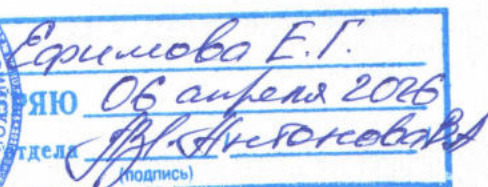 Ефимова Е.Г.
РЯЮ 06 апреля 2026
тдела Антонова
(подпись)